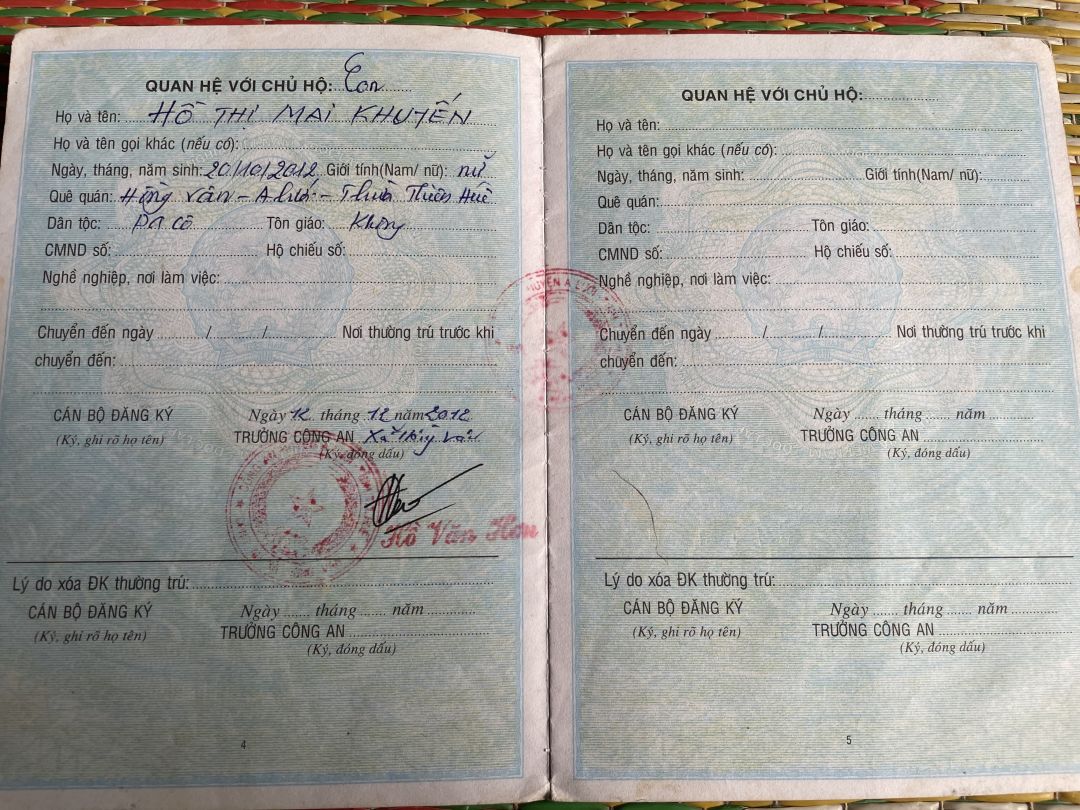 QUAN HỆ VỚI CHỦ HỘ: Con
Họ và tên: HỒ THỊ MAI KHUYẾN
Họ và tên gọi khác (nếu có):
Ngày, tháng, năm sinh: 20/10/2012 Giới tính(Nam/ nữ): nữ
Quê quán: Hồng Vân - A Lưới - Thừa Thiên Huế
Dân tộc: Pa cô Tôn giáo: Không
CMND số: Hộ chiếu số:
Nghề nghiệp, nơi làm việc:
Chuyển đến ngày / / Nơi thường trú trước khi
chuyển đến:
CÁN BỘ ĐĂNG KÝ Ngày 12 tháng 12 năm 2012
(Ký, ghi rõ họ tên) TRƯỞNG CÔNG AN Xã Hồng Vân
(Ký, đóng dấu)
Hồ Văn
Lý do xóa ĐK thường trú:
CÁN BỘ ĐĂNG KÝ Ngày tháng năm
(Ký, ghi rõ họ tên) TRƯỞNG CÔNG AN
(Ký, đóng dấu)
4
QUAN HỆ VỚI CHỦ HỘ:
Họ và tên:
Họ và tên gọi khác (nếu có):
Ngày, tháng, năm sinh: Giới tính(Nam/ nữ):
Quê quán:
Dân tộc: Tôn giáo:
CMND số: Hộ chiếu số:
Nghề nghiệp, nơi làm việc:
Chuyển đến ngày / / Nơi thường trú trước khi
chuyển đến:
CÁN BỘ ĐĂNG KÝ Ngày tháng năm
(Ký, ghi rõ họ tên) TRƯỞNG CÔNG AN
(Ký, đóng dấu)
Lý do xóa ĐK thường trú:
CÁN BỘ ĐĂNG KÝ Ngày tháng năm
(Ký, ghi rõ họ tên) TRƯỞNG CÔNG AN
(Ký, đóng dấu)
5